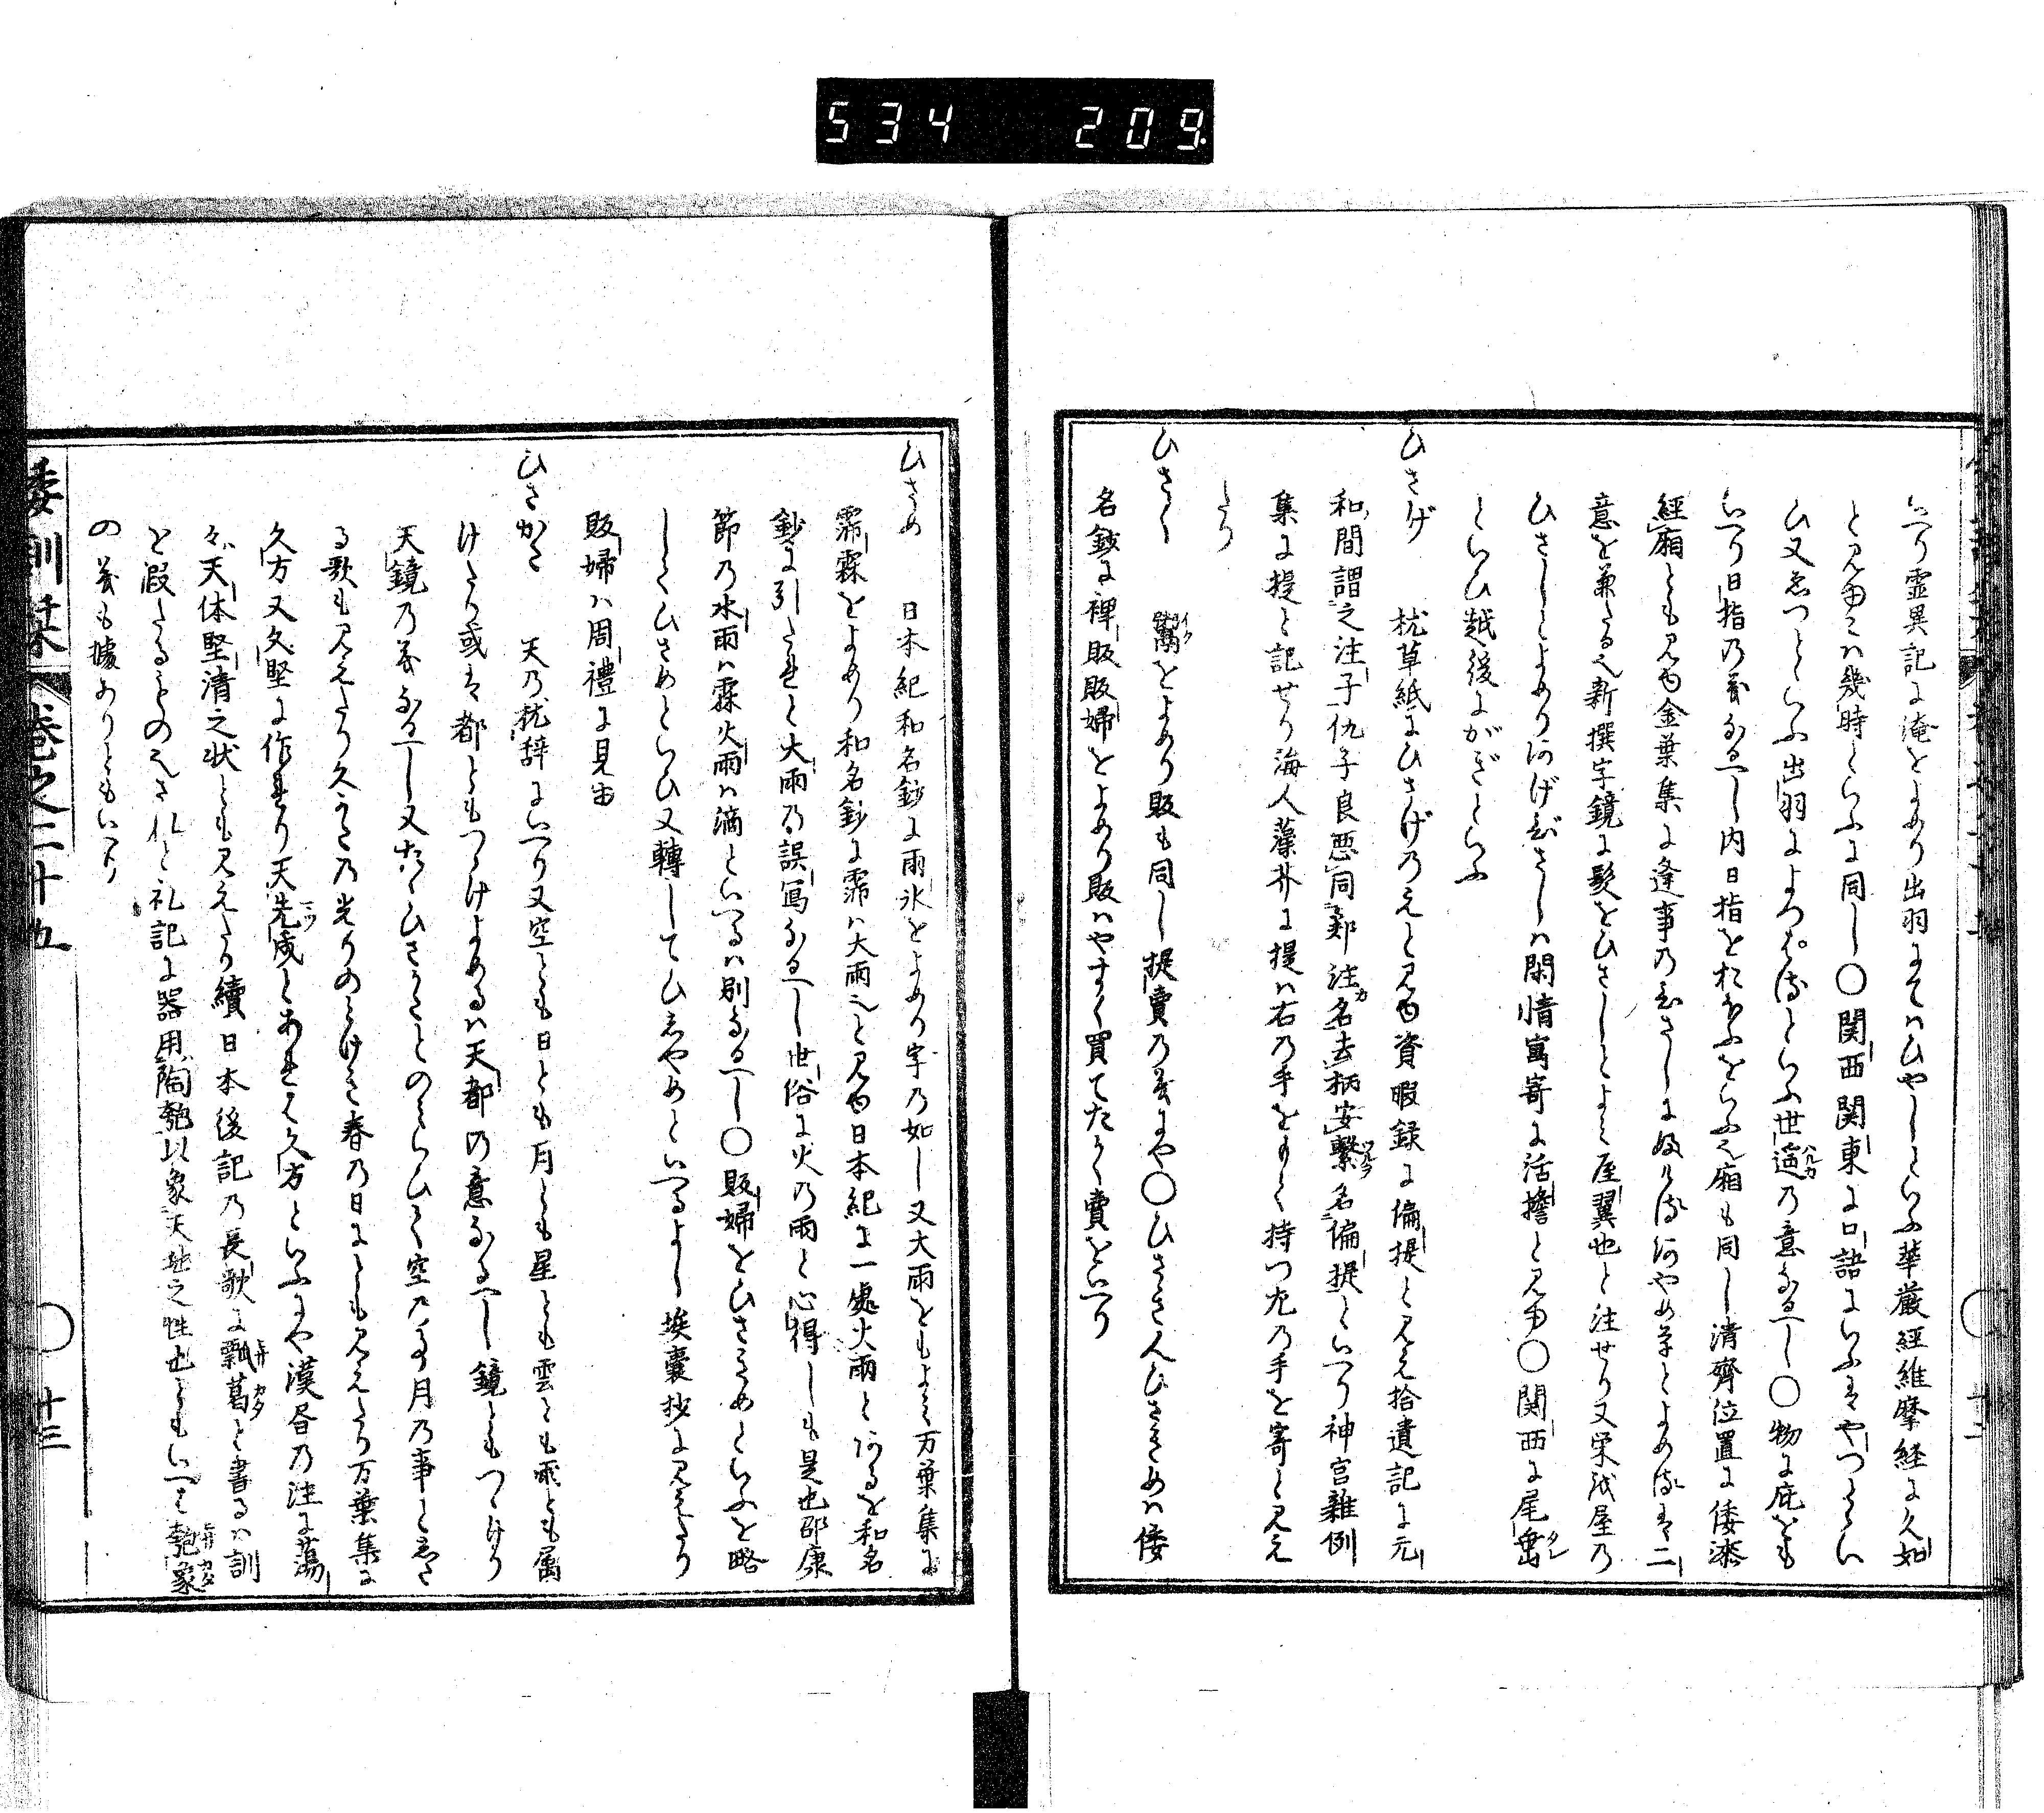 534 209
いへり霊異記に淹をよめり出羽にてはひやしといふ華厳経維摩経に久如
と見ゆるは幾時といふに同し○関西関東に口語にいふはやつとい
ひ又えつといふ出羽によつほとといふ世遥の意なるへし○物に庇をも
いへり日指の義なるへし内日指とおほふをいふ也廂も同し清齊位置に倭漆
經廂とも見ゆ金葉集に逢事のひさしに
意を兼たる也新撰字鏡に髪をひさしとよみ屋翼也と注せり又栄域屋の
ひさしとよめりあげひさしは閑情寓寄に活擔と見ゆ○関西に尾垂
といひ越後にがぎといふ
ひさげ 枕草紙にひさげのえと見ゆ資暇録に偏提と見え拾遺記に元
和間謂之注子仇子良悪同鄭注名去柄安繋名偏提といへり神宮雑例
集に提と記せり海人藻芥に提は右の手をもて持つ左の手を寄と見え
たり
ひさく 鬻をよめり販も同し提賣の義にや○ひささんひさきめは倭
名鈔に裨販販婦をよめり販はやすく買てたかく賣をいへり
ひさめ 日本紀和名鈔に雨氷をよめり字の如し又大雨をもよみ万葉集に
霈霖をよめり和名鈔に霈は大雨也と見ゆ日本紀に一處火雨とあるを和名
鈔に引たれと大雨の誤写なるへし世俗に火の雨と心得しも是也邵康
節の水雨は霖火雨は滴といへるは別なるへし○販婦をひさきめといふを略
してひさめといひ又轉してひしやめといへるよし埃嚢抄に見えたり
販婦は周禮に見ゆ
ひさかた 天の枕辞にいへり又空とも日とも月とも星とも雲とも雨とも属
けたり或は都ともつゝけよめるは天都の意なるへし鏡ともつゝけり
天鏡の義なるへし又たゝひさかたとのみいひて空の事月の事とした
る歌も見えたり久かたの光りのとけき春の日にとも見えたり万葉集に
久方又久堅に作れり天先成とあれは久方といふにや漢書の注に蕩
々天体堅清之状とも見えたり續日本後記の長歌に瓢葛と書るは訓
を假たるものへされと礼記に器用陶匏以象天地之性也ともいへは匏象
の義も據ありともいへり
倭訓栞 巻之二十五 十三